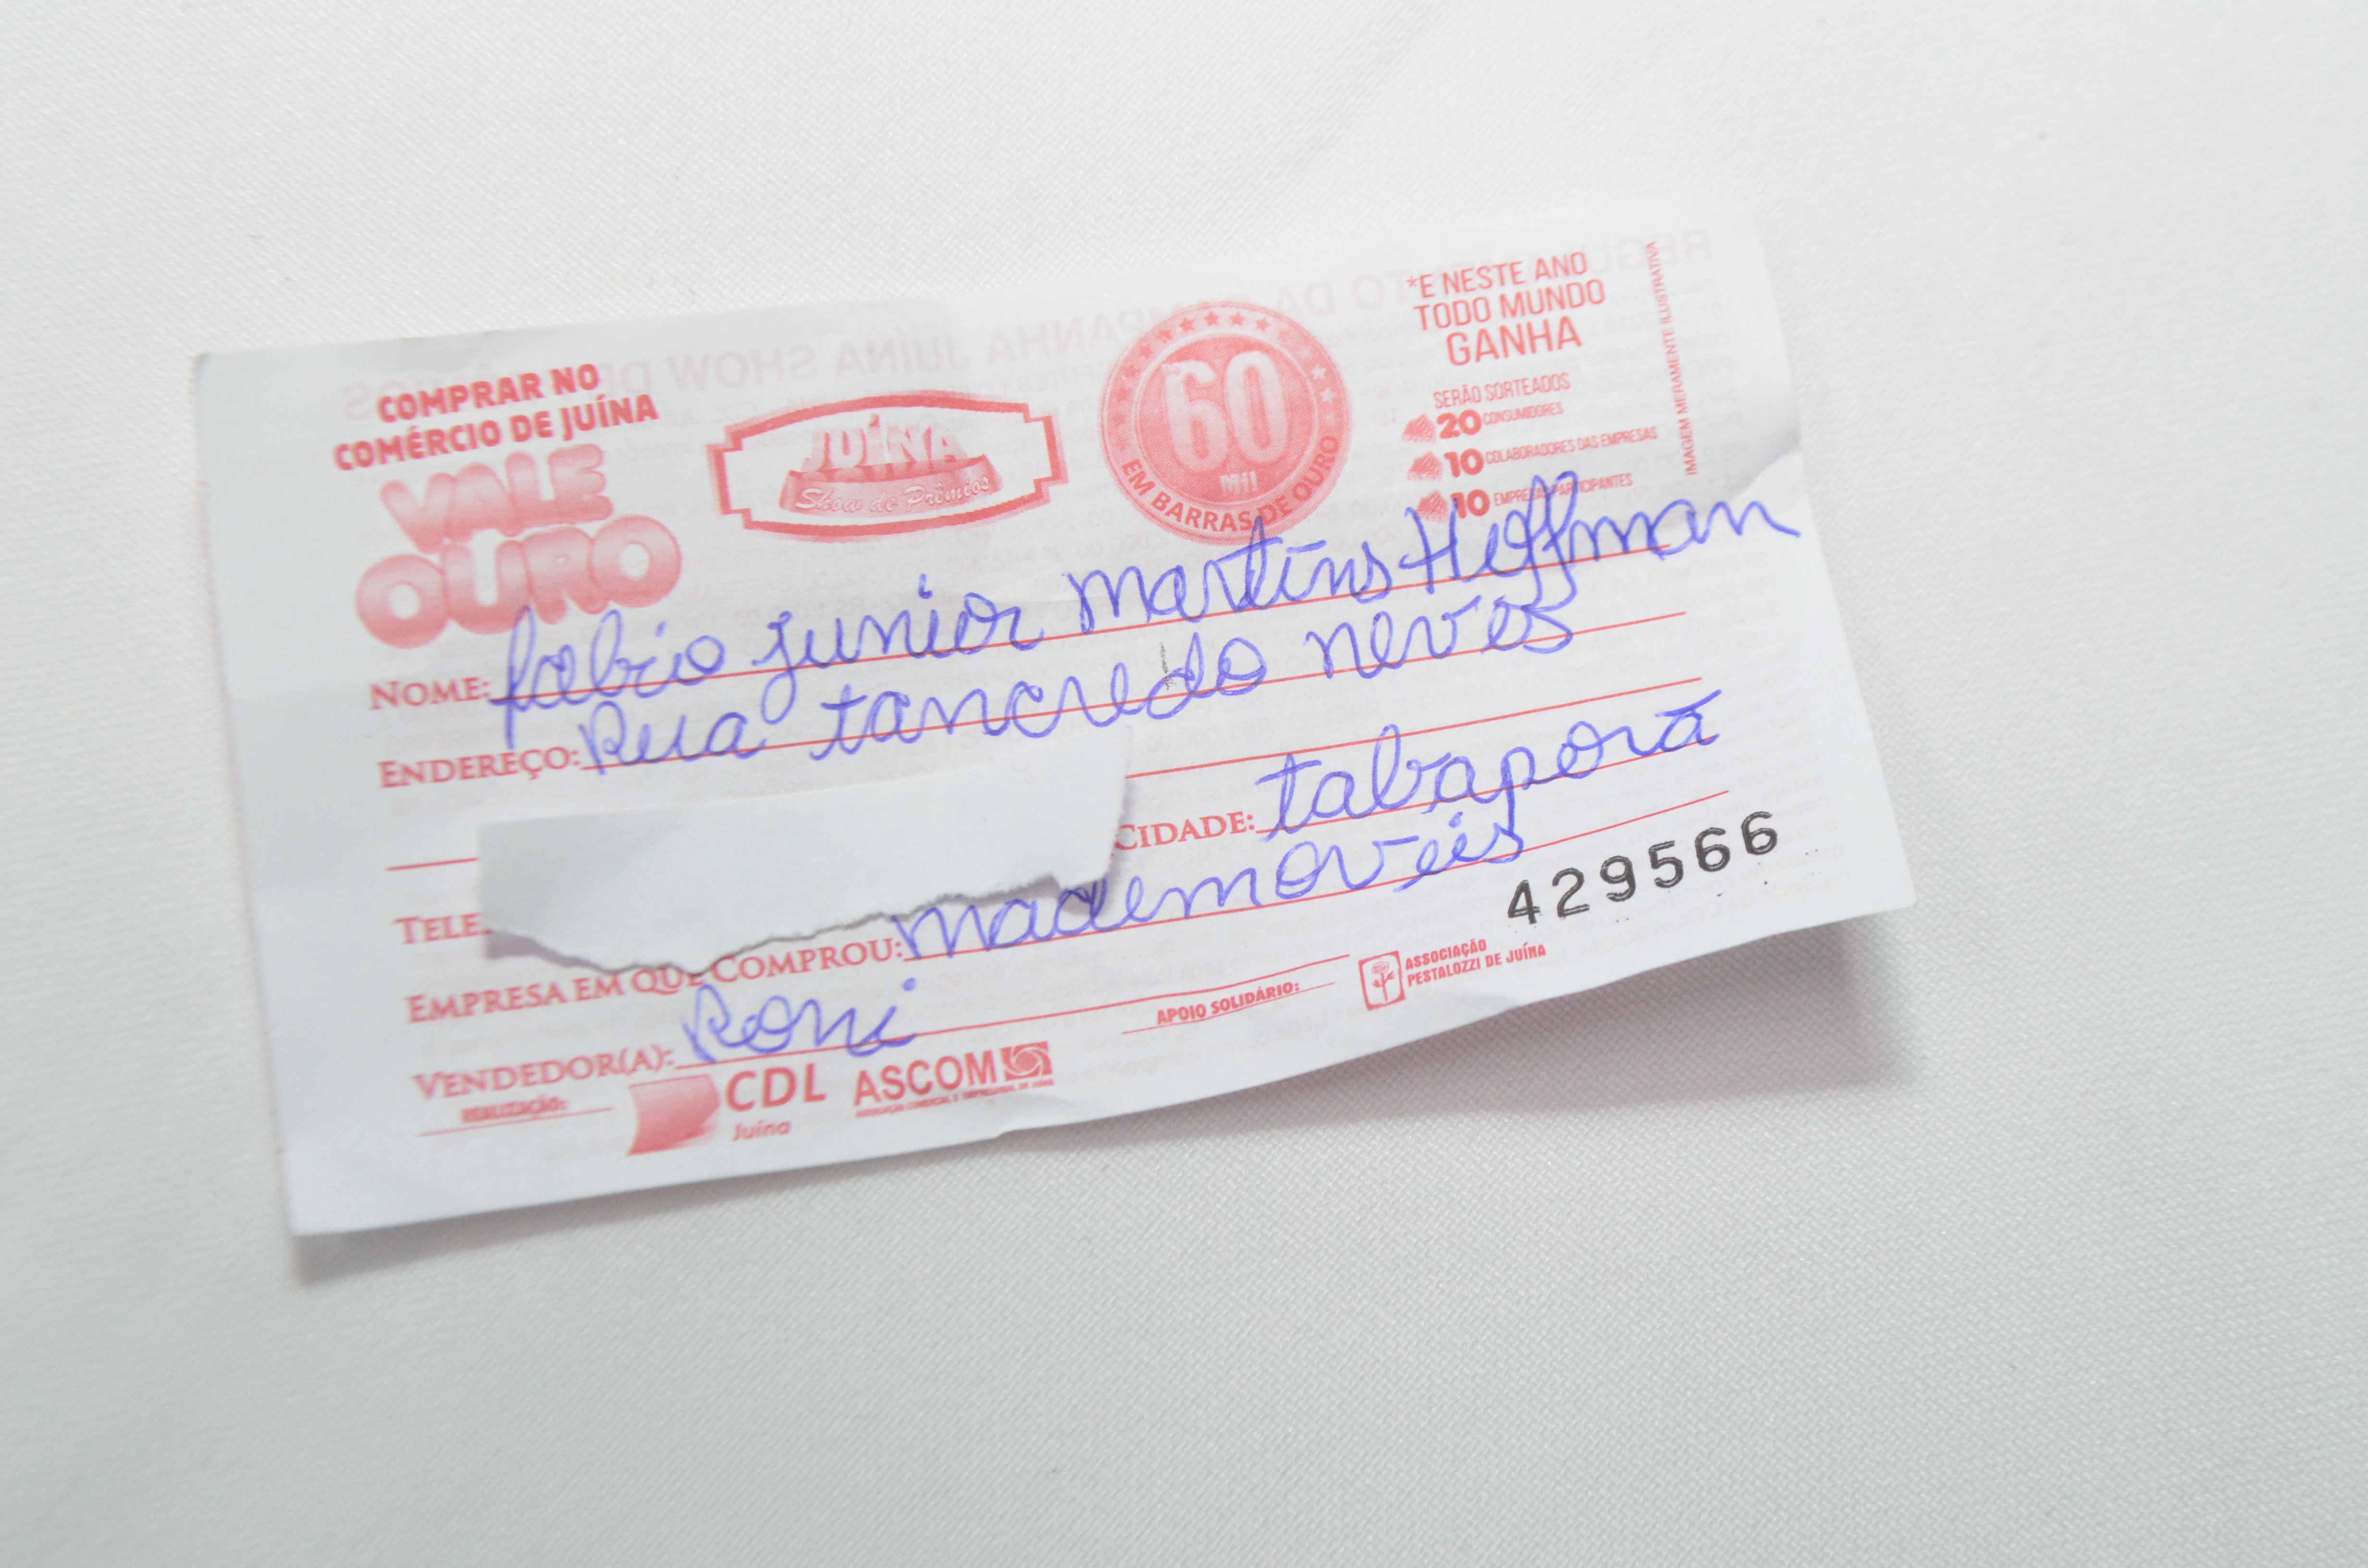 COMPRAR NO
COMÉRCIO DE JUÍNA
VALE
OURO
JUÍNA
Show de Prêmios
60
Mil
EM BARRAS DE OURO
*E NESTE ANO
TODO MUNDO
GANHA
SERÃO SORTEADOS
20 CONSUMIDORES
10 COLABORADORES DAS EMPRESAS
10 EMPRESAS PARTICIPANTES
IMAGEM MERAMENTE ILUSTRATIVA
NOME: fabio junior martins Hoffman
ENDEREÇO: Rua tancredo neves
CIDADE: tabaporã
TELE
EMPRESA EM QUE COMPROU: mademoveis
429566
VENDEDOR(A): Roni
REALIZAÇÃO:
CDL
Juína
ASCOM
APOIO SOLIDÁRIO:
ASSOCIAÇÃO
PESTALOZZI DE JUÍNA